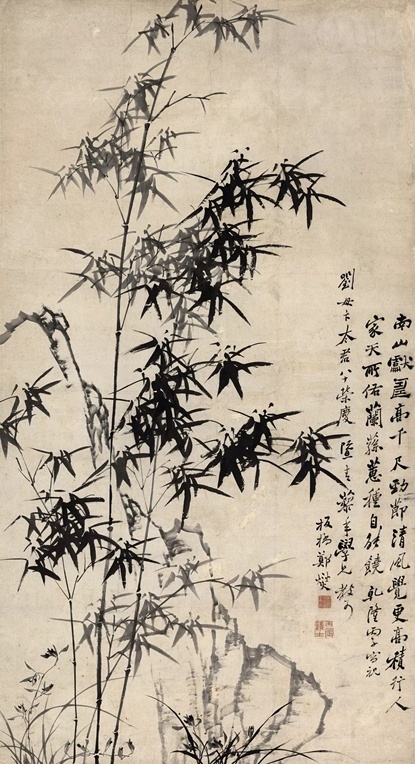 南山獻壽高千尺勁節清風覺更高積行人
家天所佑蘭蓀蕙種自能饒乾隆丙子寫祝
劉母卞太君八榮慶 年學兄教可
板橋鄭燮